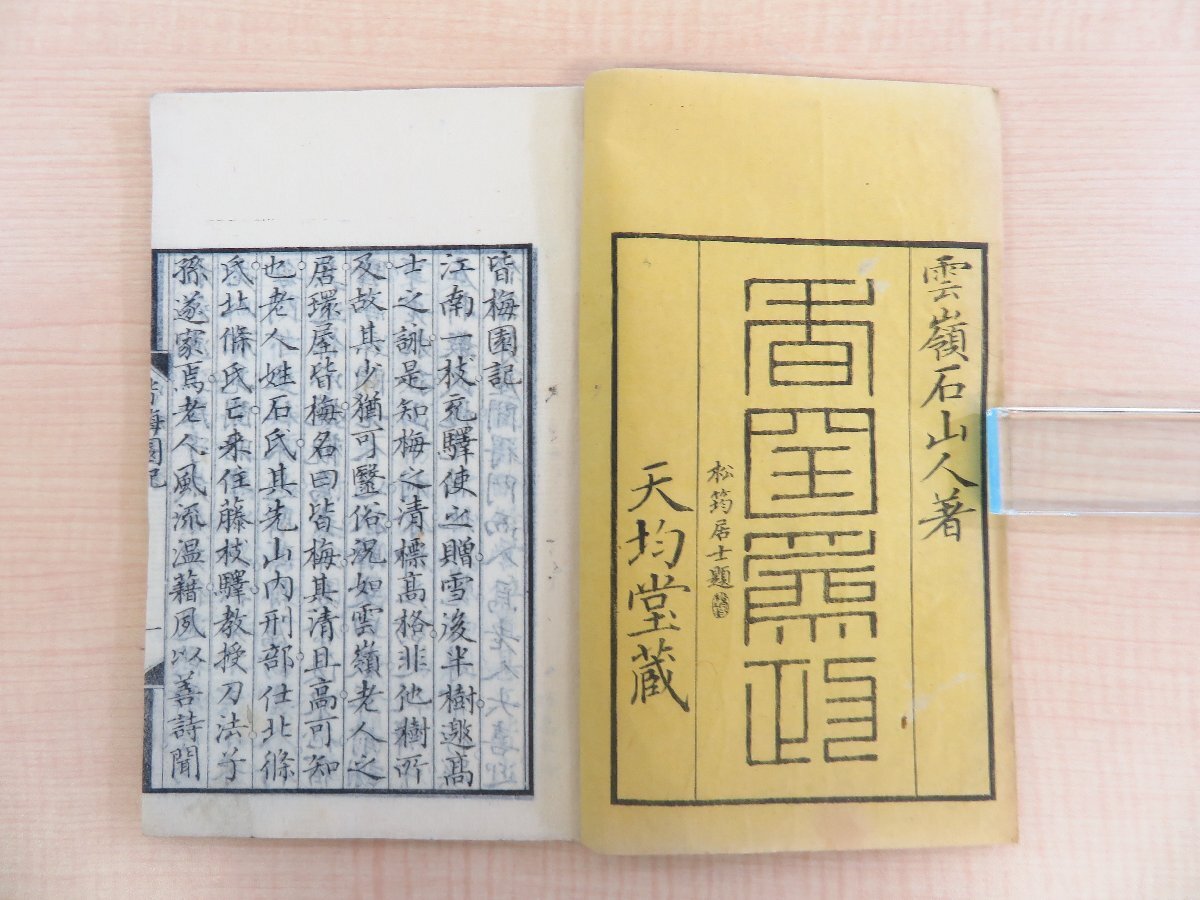 雲嶺石山人著
松筠居士題
天均堂蔵
皆梅園記
江南一枝充驛使之贈雪後半樹邀高
士之詠是知梅之清標高格非他樹所
及故其少猶可毉俗況如雲嶺老人之
居環屋皆梅名曰皆梅其清且高可知
也老人姓石氏其先山内刑部仕北條
氏北條氏亡来住藤枝驛教授刀法子
孫遂家焉老人風流温藉夙以善詩聞
皆梅園記
一